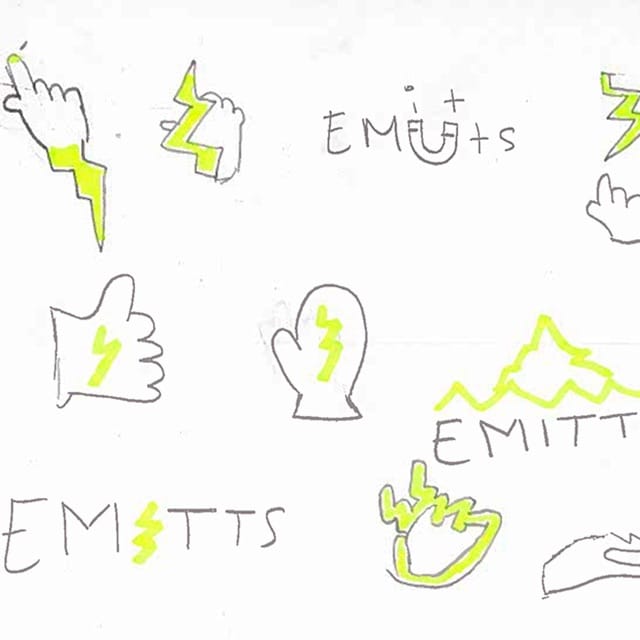 EMitts
EMITT
EMITTS